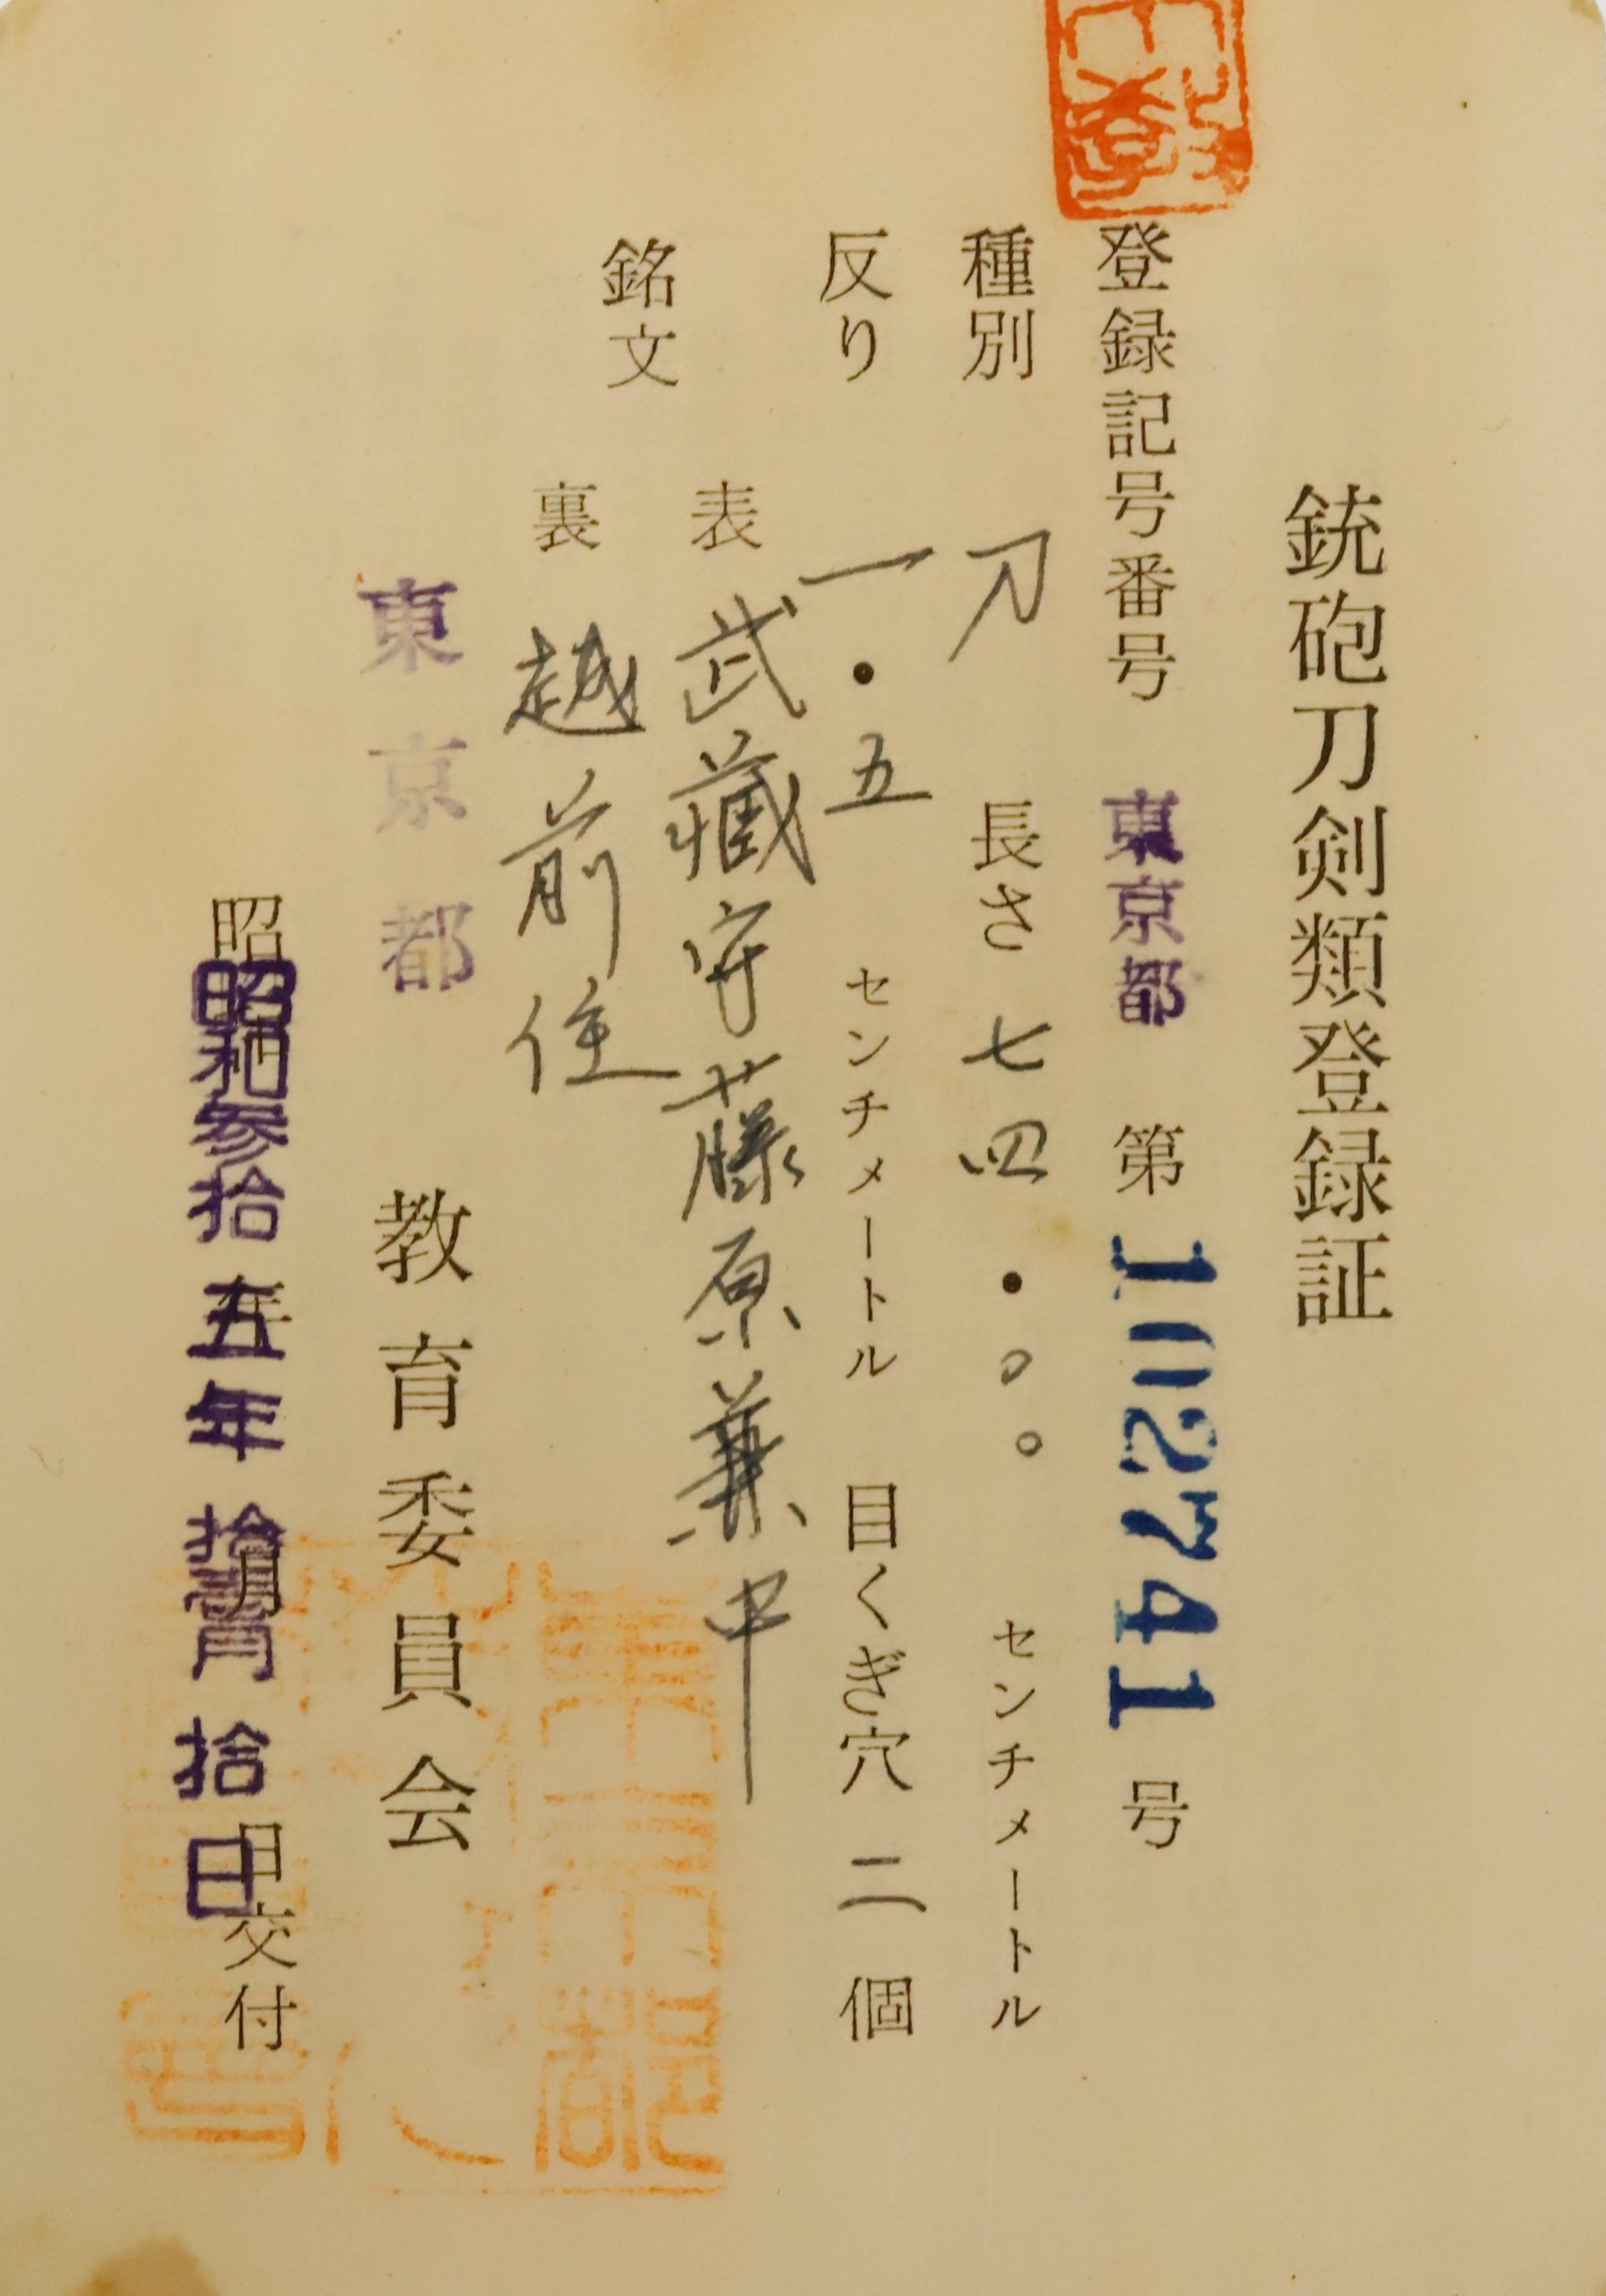 銃砲刀剣類登録証
登録記号番号 東京都 第 102741 号
種別 刀 長さ 七四・〇〇 センチメートル
反り 一・五 センチメートル 目くぎ穴 二 個
銘文
表 武藏守藤原兼中
裏 越前住
東京都 教育委員会
昭和参拾五年拾月拾日交付